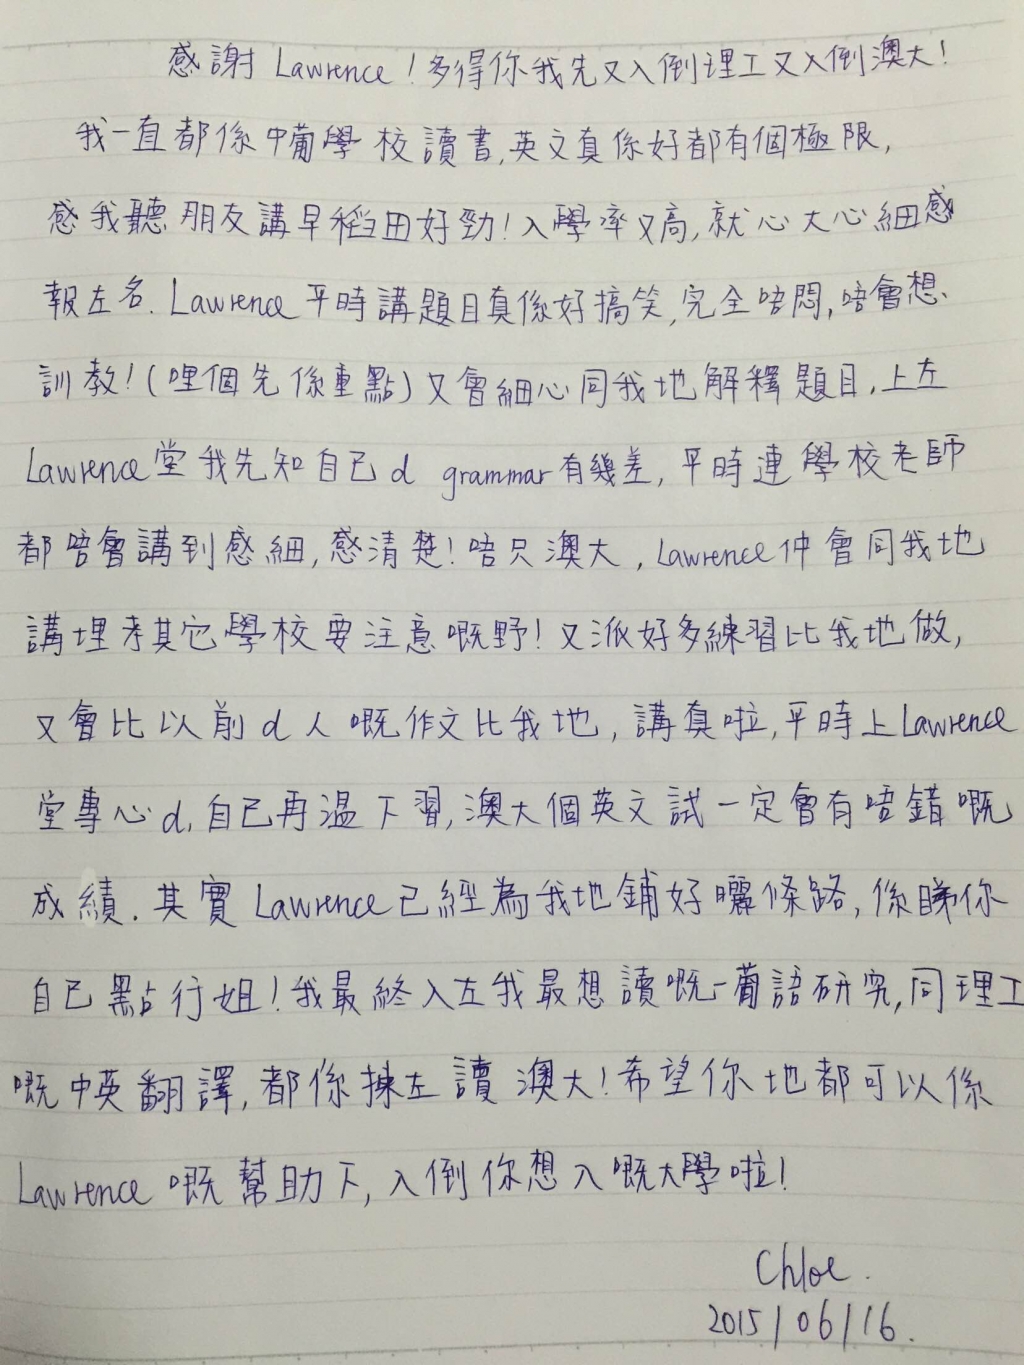 感謝 Lawrence！多得你我先又入倒理工又入倒澳大！
我一直都係中葡學校讀書,英文真係好都有個極限,
感我聽朋友講早稻田好勁！入學率又高,就心大心細感
報左名. Lawrence平時講題目真係好搞笑,完全唔悶,唔會想
訓教！(哩個先係重點)又會細心同我地解釋題目,上左
Lawrence堂我先知自已d grammar有幾差,平時連學校老師
都唔會講到感細,感清楚！唔只澳大,Lawrence仲會同我地
講埋考其它學校要注意嘅野！又派好多練習比我地做,
又會比以前d人嘅作文比我地,講真啦,平時上Lawrence
堂專心d,自已再溫下習,澳大個英文試一定會有唔錯嘅
成績.其實Lawrence已經為我地鋪好曬條路,係睇你
自已點行姐！我最終入左我最想讀嘅-葡語研究,同理工
嘅中英翻譯,都係揀左讀澳大！希望你地都可以係
Lawrence嘅幫助下,入倒你想入嘅大學啦！
Chloe.
2015/06/16.